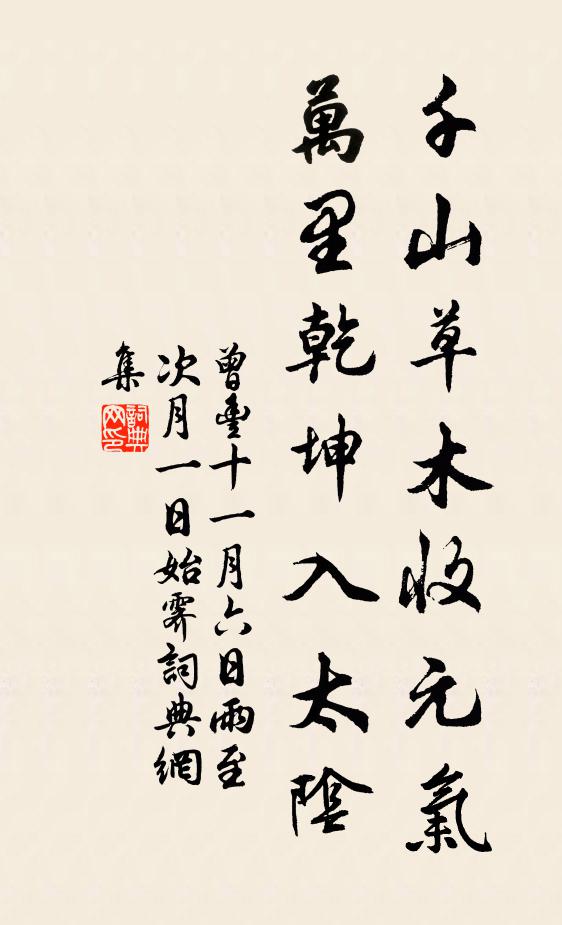 千山草木收元氣
萬里乾坤入太陰
曾豐十一月六日雨至
次月一日始霽詞典網
集
詞典
网印